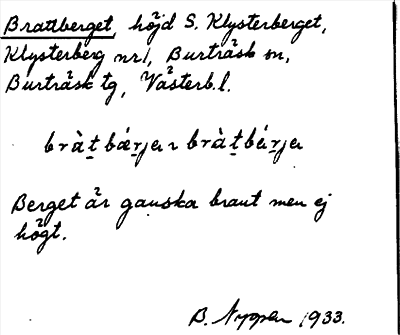 Brattberget, höjd S. Klysterberget,
Klysterberg nr 1, Burträsk sn,
Burträsk tg, Västerb.l.
bràt̲bár̲ja ~ bràt̲bár̲ja
Berget är ganska brant men ej
högt.
B. 1933.